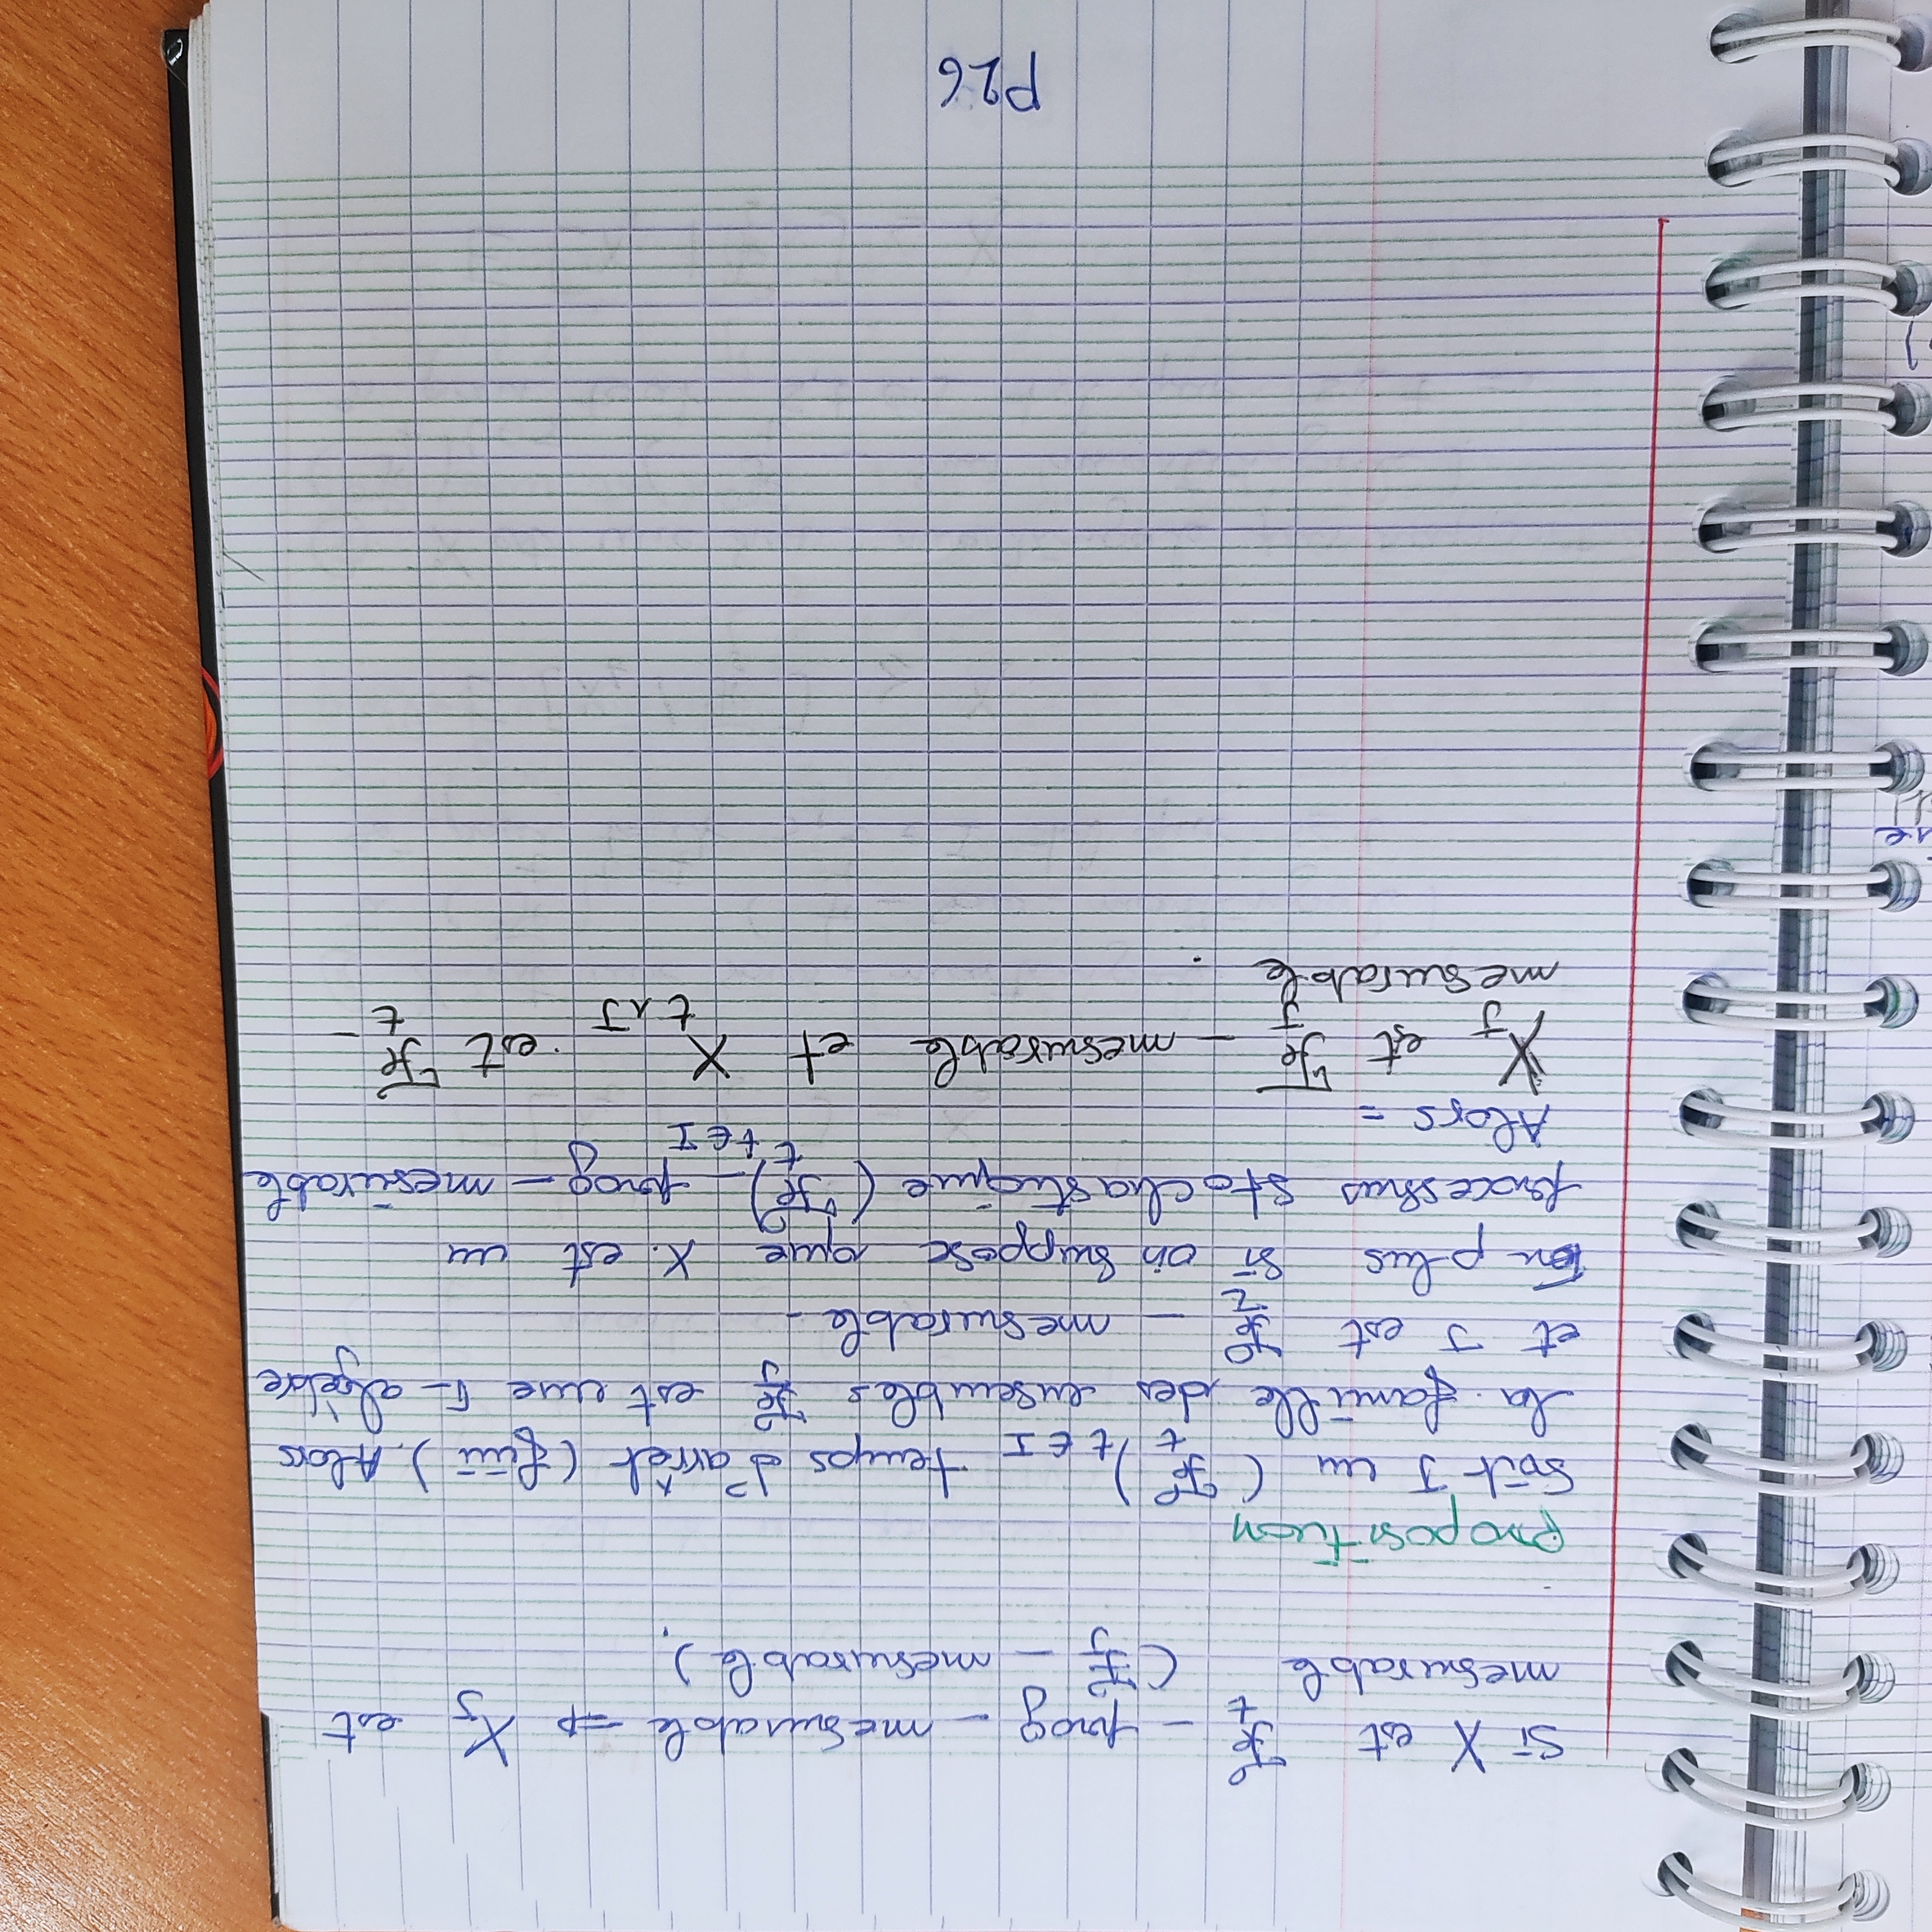 Si X est ℱ_t - prog - mesurable ⇒ X_J est
mesurable (ℱ_J - mesurable).
proposition
Soit J un (ℱ_t)_{t ∈ I} temps d'arrêt (fini). Alors
la famille des ensembles ℱ_J est une σ-algèbre
et J est ℱ_τ - mesurable -
En plus si on suppose que X. est un
processus stochastique (ℱ_t)_{t ∈ I} - prog - mesurable
Alors =
X_J est ℱ_J - mesurable et X_{t∧J} est ℱ_t -
mesurable.
P26